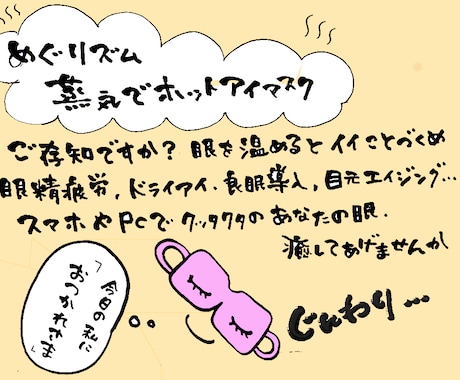 めぐりズム
蒸気でホットアイマスク
ご存知ですか? 眼を温めるとイイことづくめ
眼精疲労,ドライアイ.良眠導入,目元エイジング…
スマホやPCでクッタクタのあなたの眼.
癒してあげませんか
「今日の私に
おつかれさま」
じんわり…